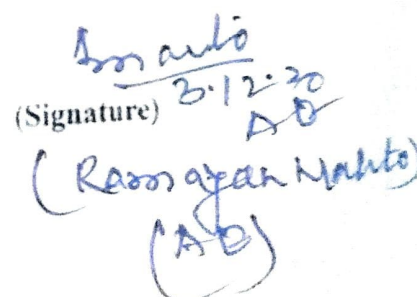 3.12.20
(Signature) AO
(Ramayan Mahto)
(AO)